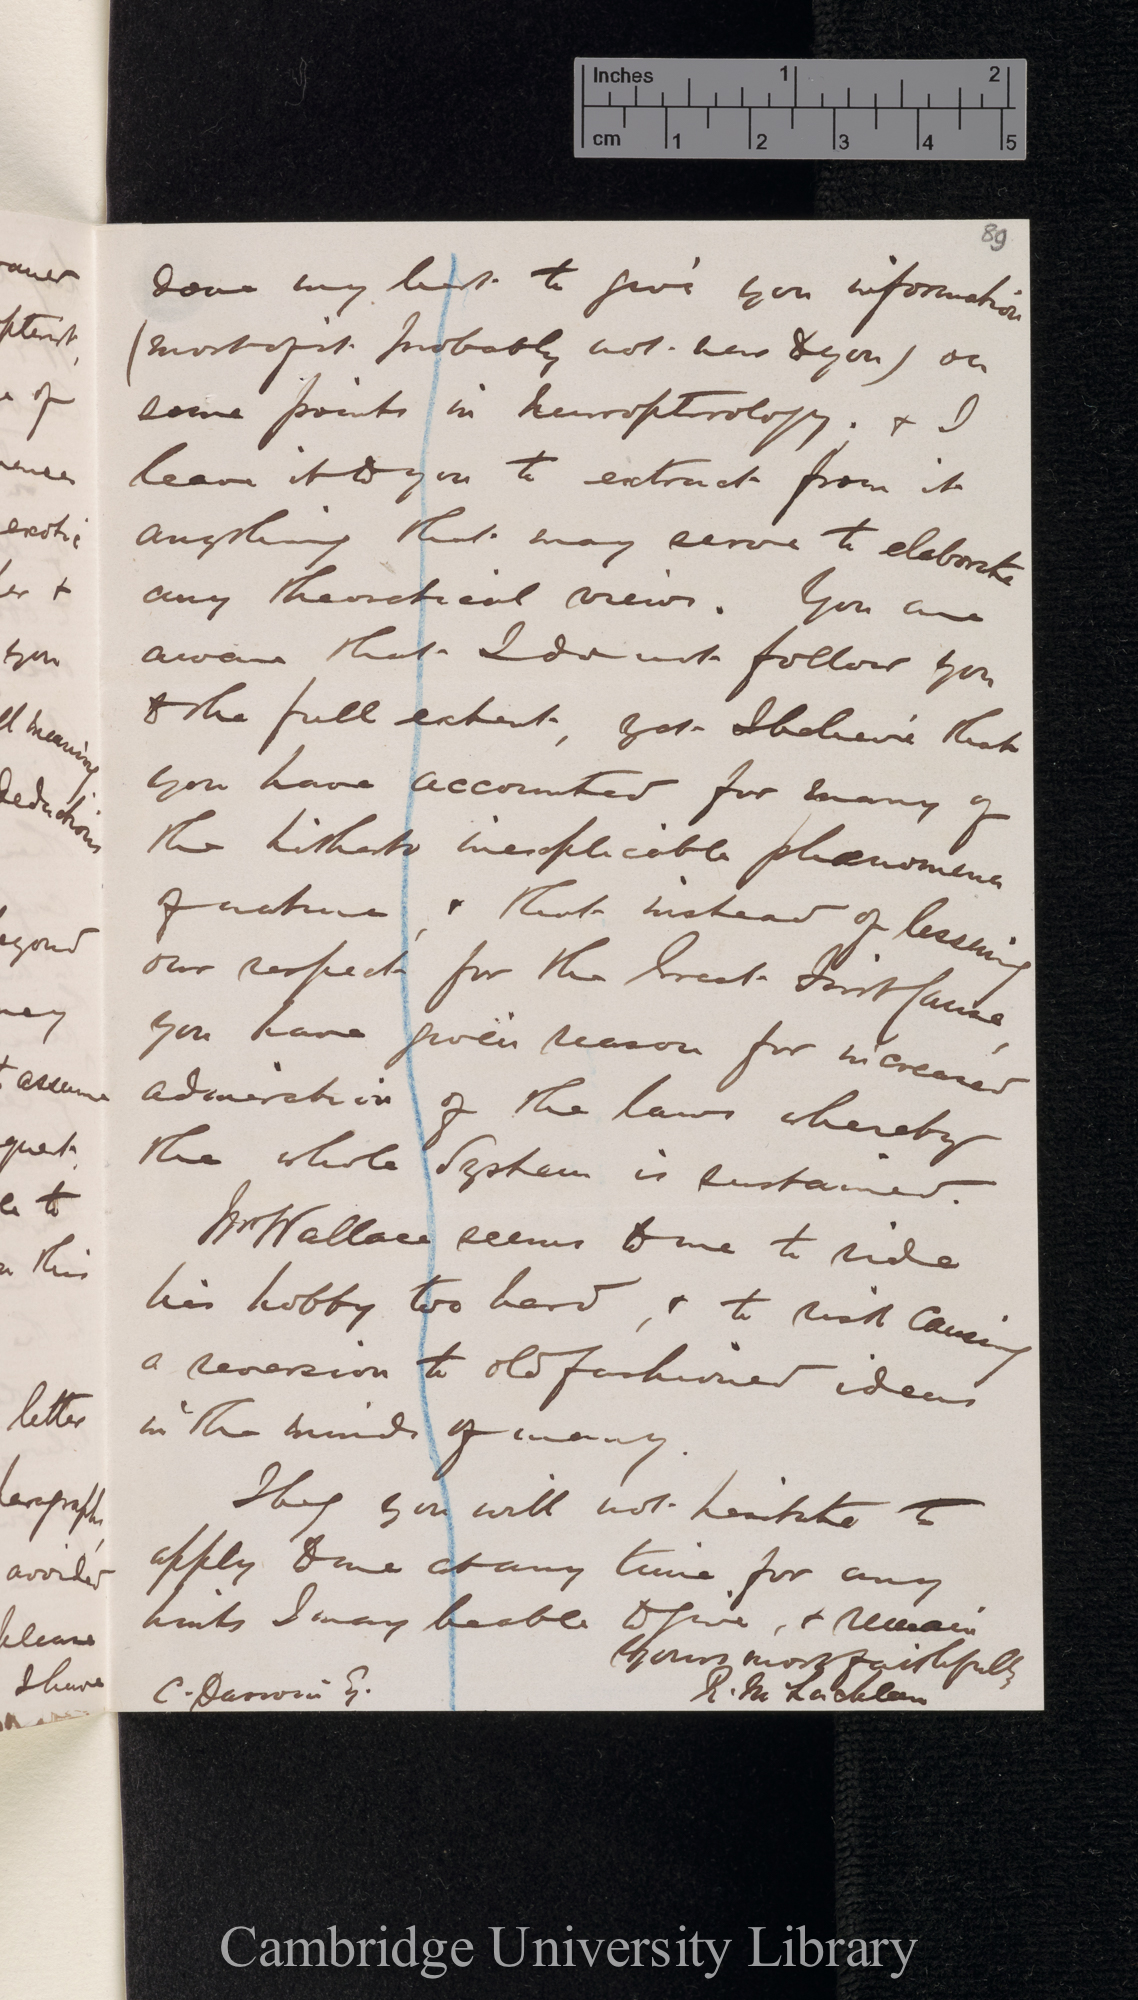 Inches 1 2
cm 1 2 3 4 5
89
done my best to give you information
(most of it probably not new to you) on
some points in Neuropterology, & I
leave it to you to extract from it
anything that may serve to elaborate
any theoretical views. You are
aware that I do not follow you
to the full extent, yet I believe that
you have accounted for many of
the hitherto inexplicable phænomena
of nature, & that instead of lessening
our respect for the Great First Cause,
you have given reason for increased
admiration of the laws whereby
the whole System is sustained.
Mr Wallace seems to me to ride
his hobby too hard, & to risk causing
a reversion to old fashioned ideas
in the minds of many.
I beg you will not hesitate to
apply to me at any time for any
hints I may be able to give, & remain
Yours most faithfully
R. Mc Lachlan
C. Darwin Esq.
of
exotic
&
you
meaning
deductions
beyond
may
assume
to
this
letter
paragraphs,
avoided
please
I have
Cambridge University Library